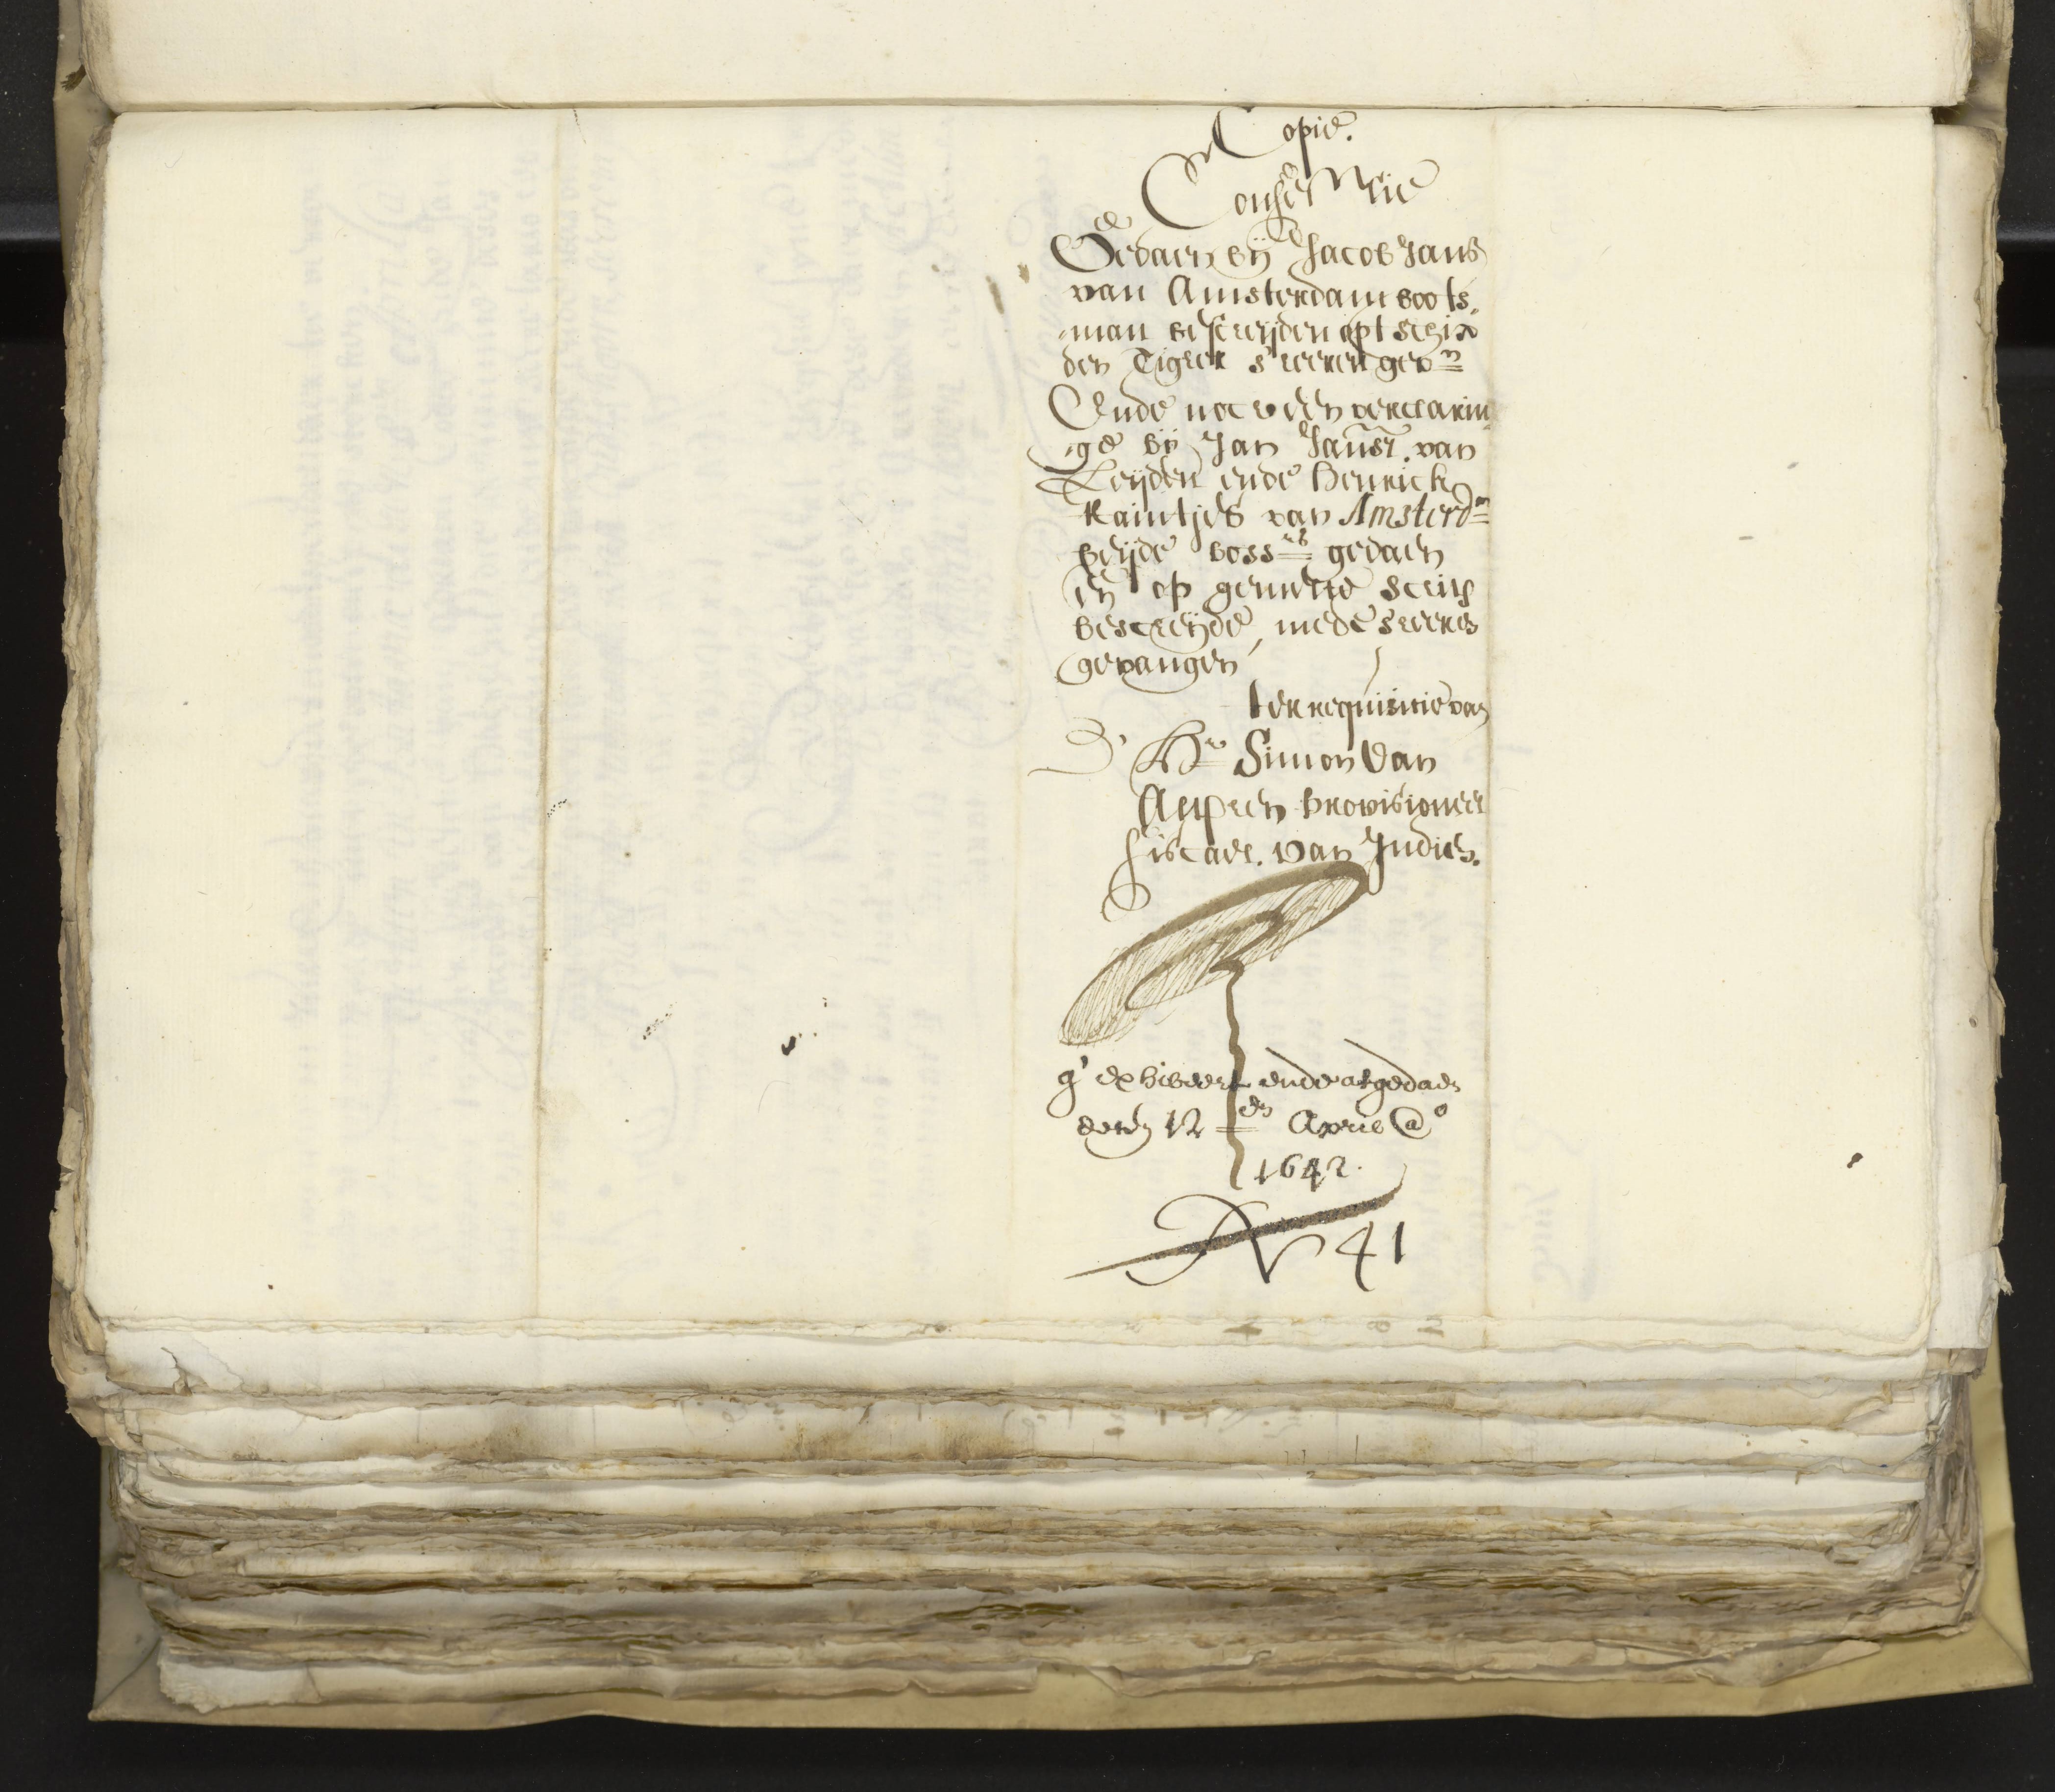 Copie.
Confessie
Gedaen bij Jacob Jans
van Amsterdam boots-
man bescheijden opt schip
den Tiger s' heeren gevn
Ende noch een verclarin
ge bij Jan Jansz. van
Leijden ende Henrick
Raintjes van Amsterdm
beijde boss.rs gedaen
en op gemelte schip
bescheijde, mede s heeren
gevangen
ter requisitie van
D' Hr Simon van
Alphen provisioneel
fiscael. van Indien.
g' exhibeert ende afgedaen
desen 12 en April @o
1642.
No 41